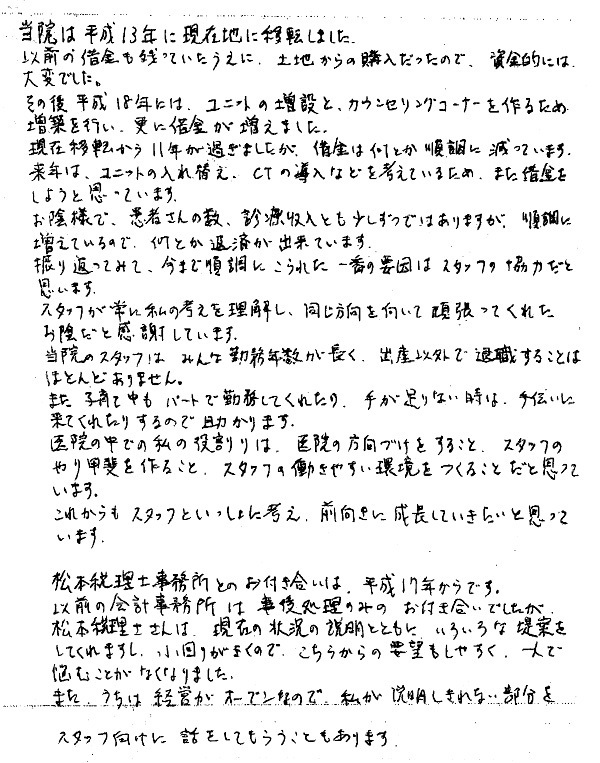 当院は平成13年に現在地に移転しました。
以前の借金も残っていたうえに、土地からの購入だったので、資金的には
大変でした。
その後平成18年には、ユニットの増設と、カウンセリングコーナーを作るため
増築を行い、更に借金が増えました。
現在移転から11年が過ぎましたが、借金は何とか順調に減っています。
来年は、ユニットの入れ替え、CTの導入などを考えているため、また借金を
しようと思っています。
お陰様で、患者さんの数、診療収入とも少しずつではありますが、順調に
増えているので、何とか返済が出来ています。
振り返ってみて、今まで順調にこられた一番の要因はスタッフの協力だと
思います。
スタッフが常に私の考えを理解し、同じ方向を向いて頑張ってくれた
お陰だと感謝しています。
当院のスタッフは みんな勤務年数が長く、出産以外で退職することは
ほとんどありません。
また子育て中もパートで勤務してくれたり、手が足りない時は、手伝いに
来てくれたりするので助かります。
医院の中での私の役割りは、医院の方向づけをすること、スタッフの
やり甲斐を作ること、スタッフの働きやすい環境をつくることだと思って
います。
これからもスタッフといっしょに考え、前向きに成長していきたいと思って
います。
松本税理士事務所とのお付き合いは、平成17年からです。
以前の会計事務所は事後処理のみのお付き合いでしたが、
松本税理士さんは、現在の状況の説明とともに、いろいろな提案を
してくれますし、小回りがきくので、こちらからの要望もしやすく、一人で
悩むことがなくなりました。
また、うちは経営がオープンなので、私が説明しきれない部分を
スタッフ向けに話をしてもらうこともあります。